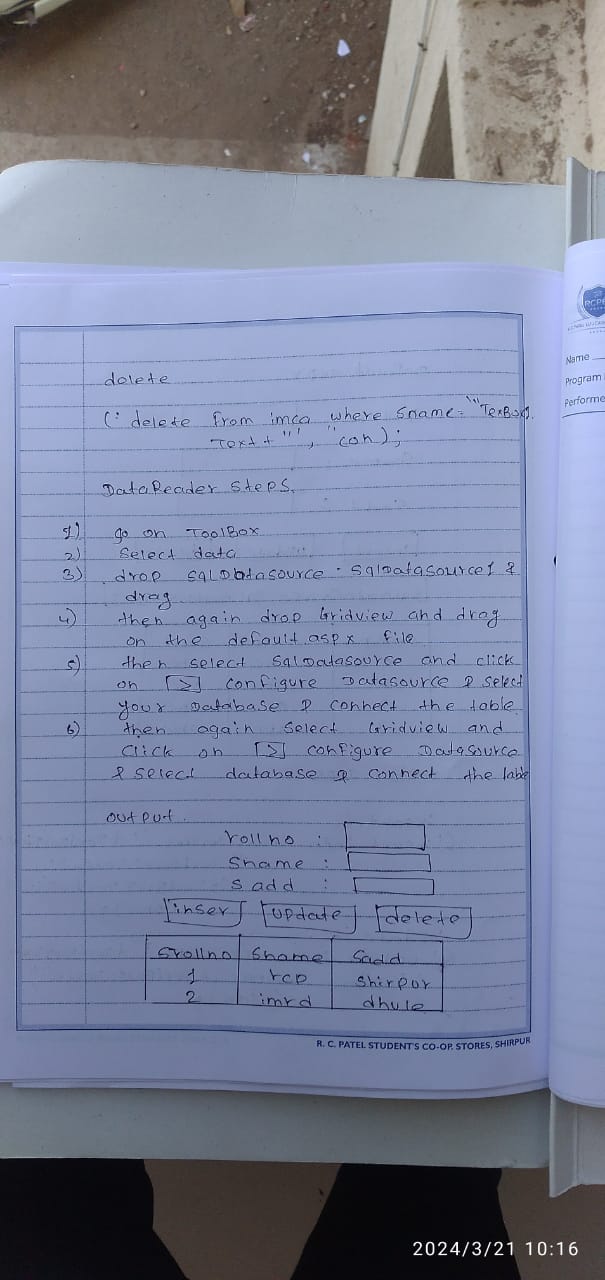 delete
(" delete from imca where sname = '" TexBox1.
Text + "'", "con);
DataReader steps.
1) go on ToolBox
2) Select data
3) drop SqlDatasource. SqlDatasource1 &
drag
4) then again drop Gridview and drag
on the default.aspx file
5) then select SqlDatasource and click
on [>] configure Datasource & select
your Database & connect the table
6) then again select Gridview and
click on [>] configure Datasource
& select database & connect the table
output
rollno :
Sname :
S add :
inser update delete
Srollno Sname Sadd
1 rcp Shirpur
2 imrd dhule
R. C. PATEL STUDENT'S CO-OP. STORES, SHIRPUR
RCPE
Name
Program
Performe
2024/3/21 10:16